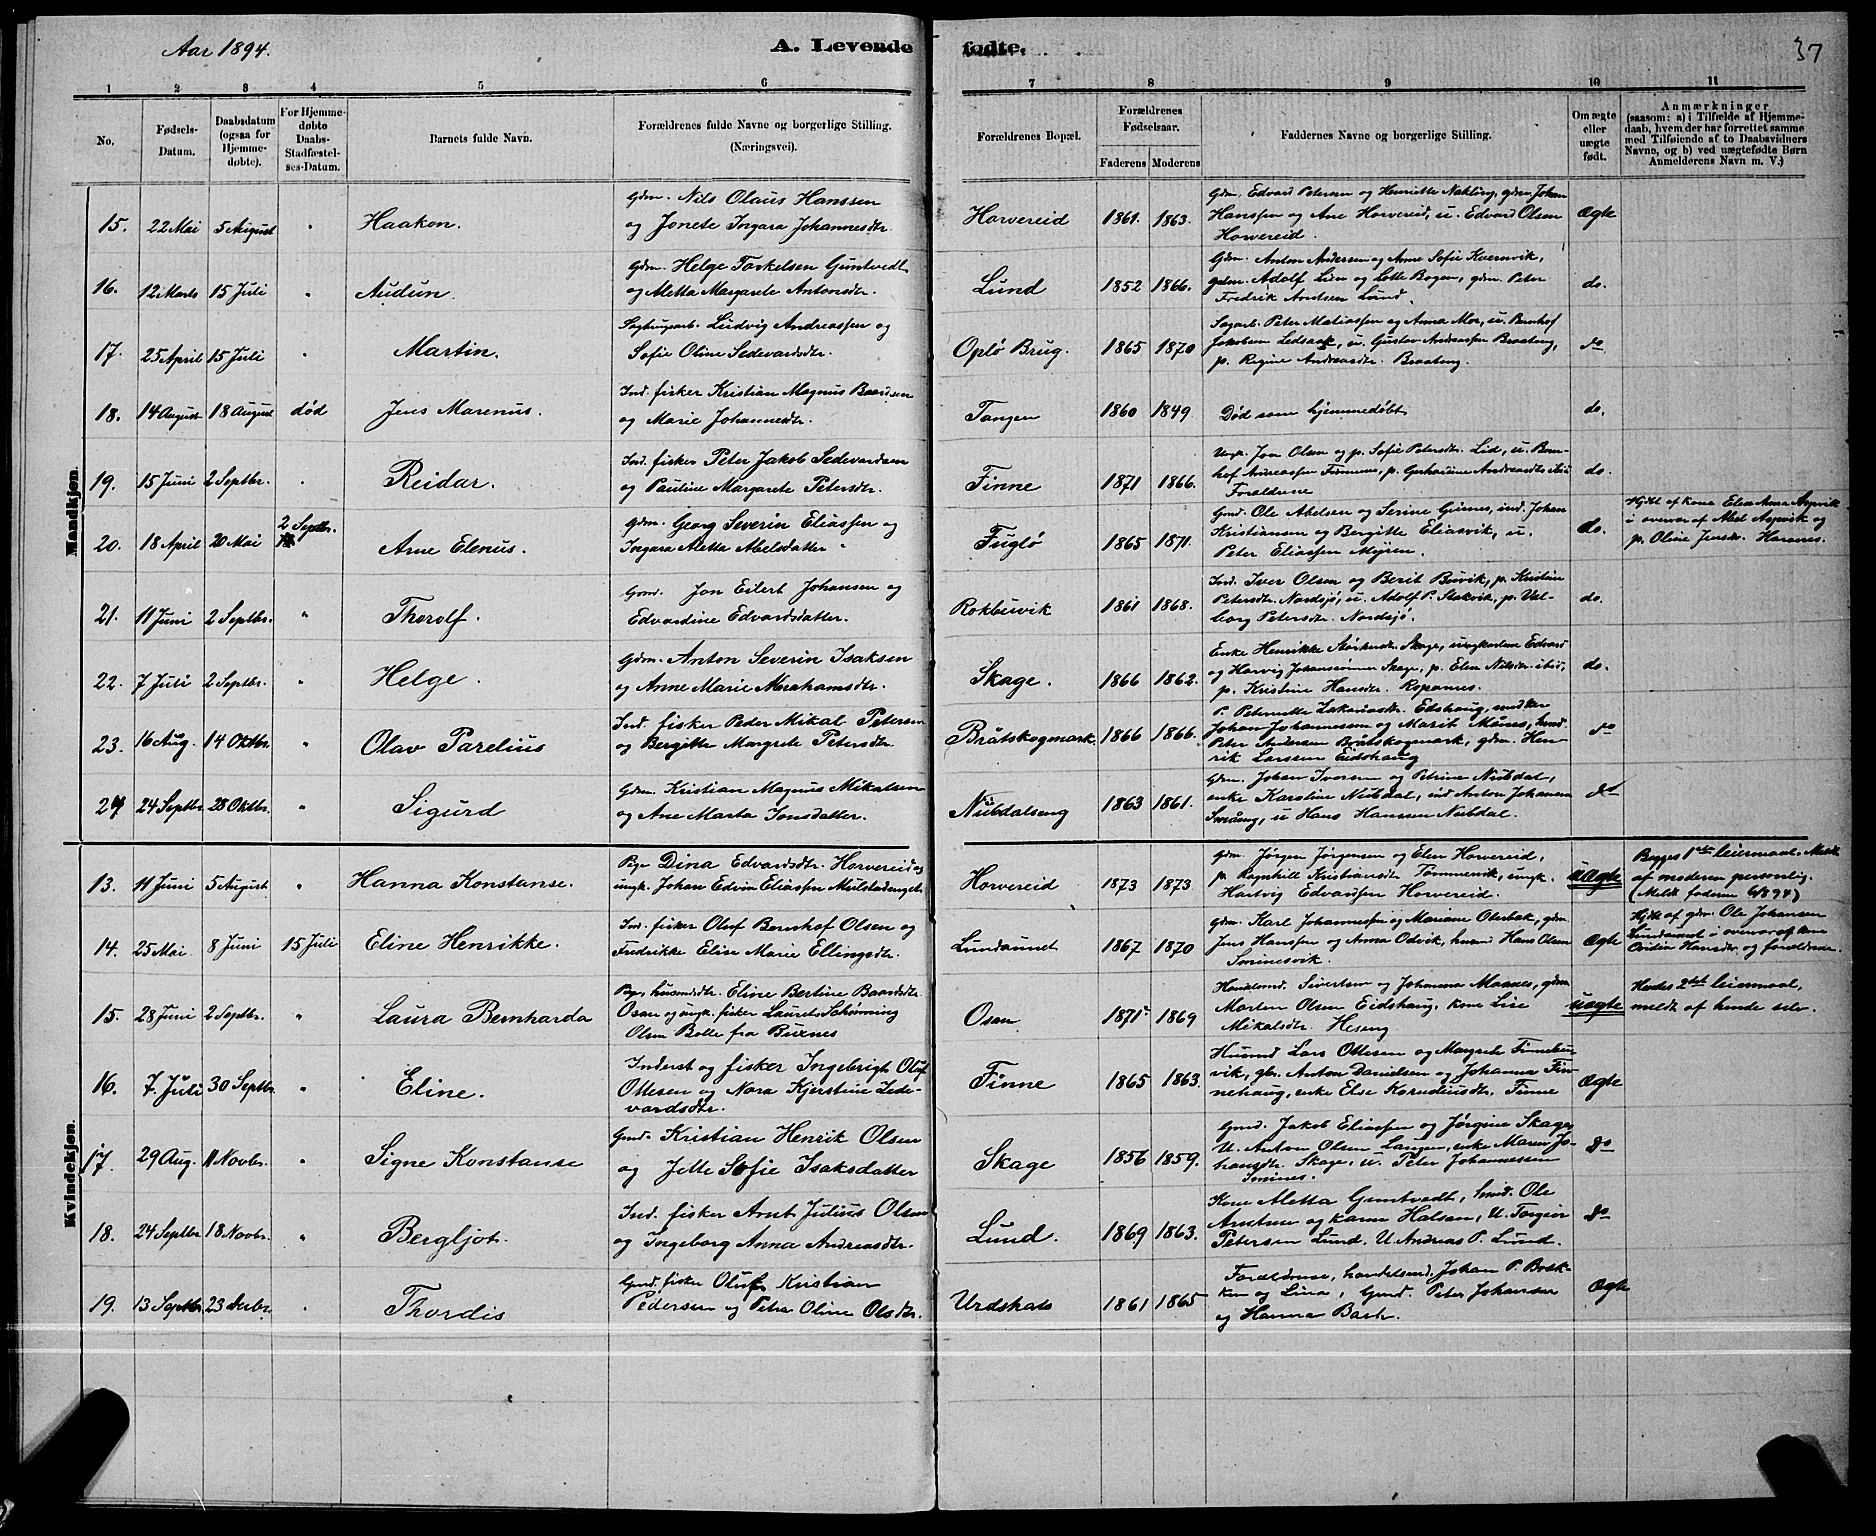 Aar 1894. A. Levende fødte. 37
1 2 3 4 5 6 7 8 9 10 11
No.
Fødsels-Datum.
Daabsdatum (ogsaa for Hjemmedøbte).
For Hjemmedøbte Daabs-Stadfæstelses-Datum.
Barnets fulde Navn.
Forældrenes fulde Navne og borgerlige Stilling.
(Næringsvei).
Forældrenes Bopæl.
Forældrenes Fødselsaar.
Faderens Moderens
Faddernes Navne og borgerlige Stilling.
Om ægte eller uægte født.
Anmærkninger
(saasom: a) i Tilfælde af Hjemmedaab, hvem der har forrettet samme med Tilføiende af to Daabsvidners Navne, og b) ved uægtefødte Børn Anmelderens Navn m. V.)
Mandkjøn.
15. 22 Mai 5 August " Haakon.
Gdm. Nils Olaus Hanssen
og Jonete Ingara Johannesdtr.
Horvereid 1861. 1863.
Gdm. Edvard Petersen og Henriette Nakling, gdm. Johan
Hanssen og Ane Horvereid, u. Edvard Olsen
Horvereid.
Ægte
16. 12 Marts 15 Juli " Audun.
Gdm. Helge Torkelsen Guntvedt
og Aletta Margarete Antonsdtr.
Lund 1852 1866.
Gdm. Anton Andersen og Anne Sofie Kvernvik,
gdm. Adolf Lien og Lotte Bogen, gdm. Peter
Fredrik Arntsen Lund.
do.
17. 25 April 15 Juli " Martin.
Sagbrugsarb. Ludvig Andreassen og
Sofie Oline Sedevardsdtr.
Oplø Brug. 1865 1870
Sagarb. Peter Matiassen og Anna Moe, u. Bernhof
Jakobsen, u. Gustav Andreassen Braateng,
p. Regine Andreasdtr. Braateng.
do
18. 14 August 18 August død Jens Marenus.
Ind. fisker Kristian Magnus Baardsen
og Marie Johannesdtr.
Tangen 1860 1849
Død som hjemmedøbt
do.
19. 15 Juni 2 Septbr. " Reidar.
Ind. fisker Peter Jakob Sedevardsen
og Pauline Margarete Petersdtr.
Finne 1871 1866.
Ungk. Jon Olsen og p. Sofie Petersdtr. Lid, u. Bern-
hof Andreassen Finnemo, p. Andreasdtr. ibid
Forældrene
do.
20. 18 April 20 Mai 2 Septbr. Arne Elenus.
Gdm. Georg Severin Eliassen og
Ingara Aletta Abelsdatter "
Fuglø 1865 1871.
Gmd. Ole Abelsen og Serine Grinnes, ind. Johan
Kristiansen og Bergitte Eliasvik, u.
Peter Eliassen Myren.
do.
Hjdbt af kone Elen Anna Aspvik
i overvær af Abel Aspvik og
p. Oline Jensdtr. Hansnes.
21. 11 Juni 2 Septbr. " Thorolf.
Gmd. Jon Eilert Johansen og
Edvardine Edvardsdatter.
Rokbuvik 1861 1868.
Ind. Iver Olsen og Berit Buvik, p. Kristine
Petersdtr. Nordsjø, u. Adolf P. Stakvik, p. Val-
borg Petersdtr. Nordsjø.
do.
22. 7 Juli 2 Septbr. " Helge.
Gdm. Anton Severin Isaksen
og Anne Marie Abrahamsdtr.
Skage. 1866 1862.
Enke Henrikke Størkersdtr. Skage, ungkarlene Edvard
og Harvig Johansønner Skage, p. Elen Nilsdtr. ibid,
p. Kristine Hansdtr. Ropannes.
do.
23. 16 Aug. 14 Oktbr. " Olav Parelius
Ind. fisker Peder Mikal Petersen
og Bergitte Margrete Petersdtr.
Bråtskogmark. 1866 1866.
P. Peternette Zakariasdtr. Edshaug, snedker
Johan Johannessen og Marit Månes, husmd.
Peter Andersen Bråtskogmark, gdm. Hen-
rik Larssen Eidshaug
do
24 24 Septbr. 28 Oktbr. " Sigurd
Gdm. Kristian Magnus Mikalsen
og Ane Marta Jonsdatter.
Nubdalseng 1863 1861.
Gdm. Johan Iversen og Petrine Nubdal,
enke Karoline Nubdal, ind. Anton Johansen
Småeng, u Hans Hanssen Nubdal.
do
Kvindekjøn.
13. 11 Juni 5 August " Hanna Konstanse.
Pige Dina Edvardsdtr. Horvereid og
ungk. Johan Edvin Eliassen
Horvereid 1873 1873
Gdm. Jørgen Jørgensen og Elen Horvereid,
p. Ragnhild Kristiansdtr. Tømmervik, ungk.
Hartvig Edvardsen Horvereid.
Uægte
Begges 1ste leiermaal. Meldt
af moderen personlig.
(Meldt faderen 6/8 94)
14. 25 Mai 8 Juni 15 Juli Eline Henrikke.
Ind. fisker Oluf Bernhof Olsen og
Fredrikke Elise Marie Ellingsdtr.
Lundaunet 1867 1870
Gdm. Karl Johannessen og Mariane Oterbak, gdm.
Jens Hanssen og Anna Odvik, husmd Hans Olsen
Sminesvik.
Ægte
Hjdbt af gdm. Ole Johansen
Lundaunet i overvær af kone
Hansdtr. og forældrene.
15. 28 Juni 2 Septbr. " Laura Bernharda
Pige, husmdsdtr. Eline Bertine Baardsdtr.
Osan og ungk. fisker Laurits Schønning
Olsen Bolle fra Buxnes
Osan 1871 1869
Handelsmd. Sivertsen og Johanna Maanes, gdm
Morten Olsen Eidshaug, kone Lise
Mikalsdtr. Heseng
uægte
Hendes 2det leiermaal,
meldt af hende selv.
16. 7 Juli 30 Septbr. " Eline.
Inderst og fisker Ingebrigt Oluf
Ottesen og Nora Kjerstine Sede-
vardsdtr.
Finne 1865 1863.
Husmd Lars Ottesen og Margrete Finnebu-
vik, gbr. Anton Danielsen og Johanna Fin-
nehaug, enke Else Korneliusdtr. Finne
Ægte
17. 29 Aug. 11 Novbr. " Signe Konstanse
Gmd. Kristian Henrik Olsen
og Jette Sofie Isaksdatter
Skage 1856 1859.
Gmd. Jakob Eliassen og Jørgine Skage,
U. Anton Olsen Langen, enke Maren Jo-
hansdtr. Skage, u. Peter Johannessen
Sminnes.
do
18. 24 Septbr. 18 Novbr. " Bergljot.
Ind. fisker Arnt Julius Olsen
og Ingeborg Anna Andreasdtr.
Lund. 1869 1863.
Kone Aletta Guntvedt, husmd. Ole
Arntsen og Karen Halsen, U. Torgier
Petersen Lund. U. Andreas P. Lund.
do
19. 13 Septbr. 23 Decbr. " Thordis
Gmd. fisker Oluf Kristian
Pedersen og Petra Oline Olsdtr.
Urdshals 1861 1865
Forældrene, handelsmd. Johan P. Brek-
ken og Lina, Gmd. Peter Johansen
og Hanna Bach.
Ægte